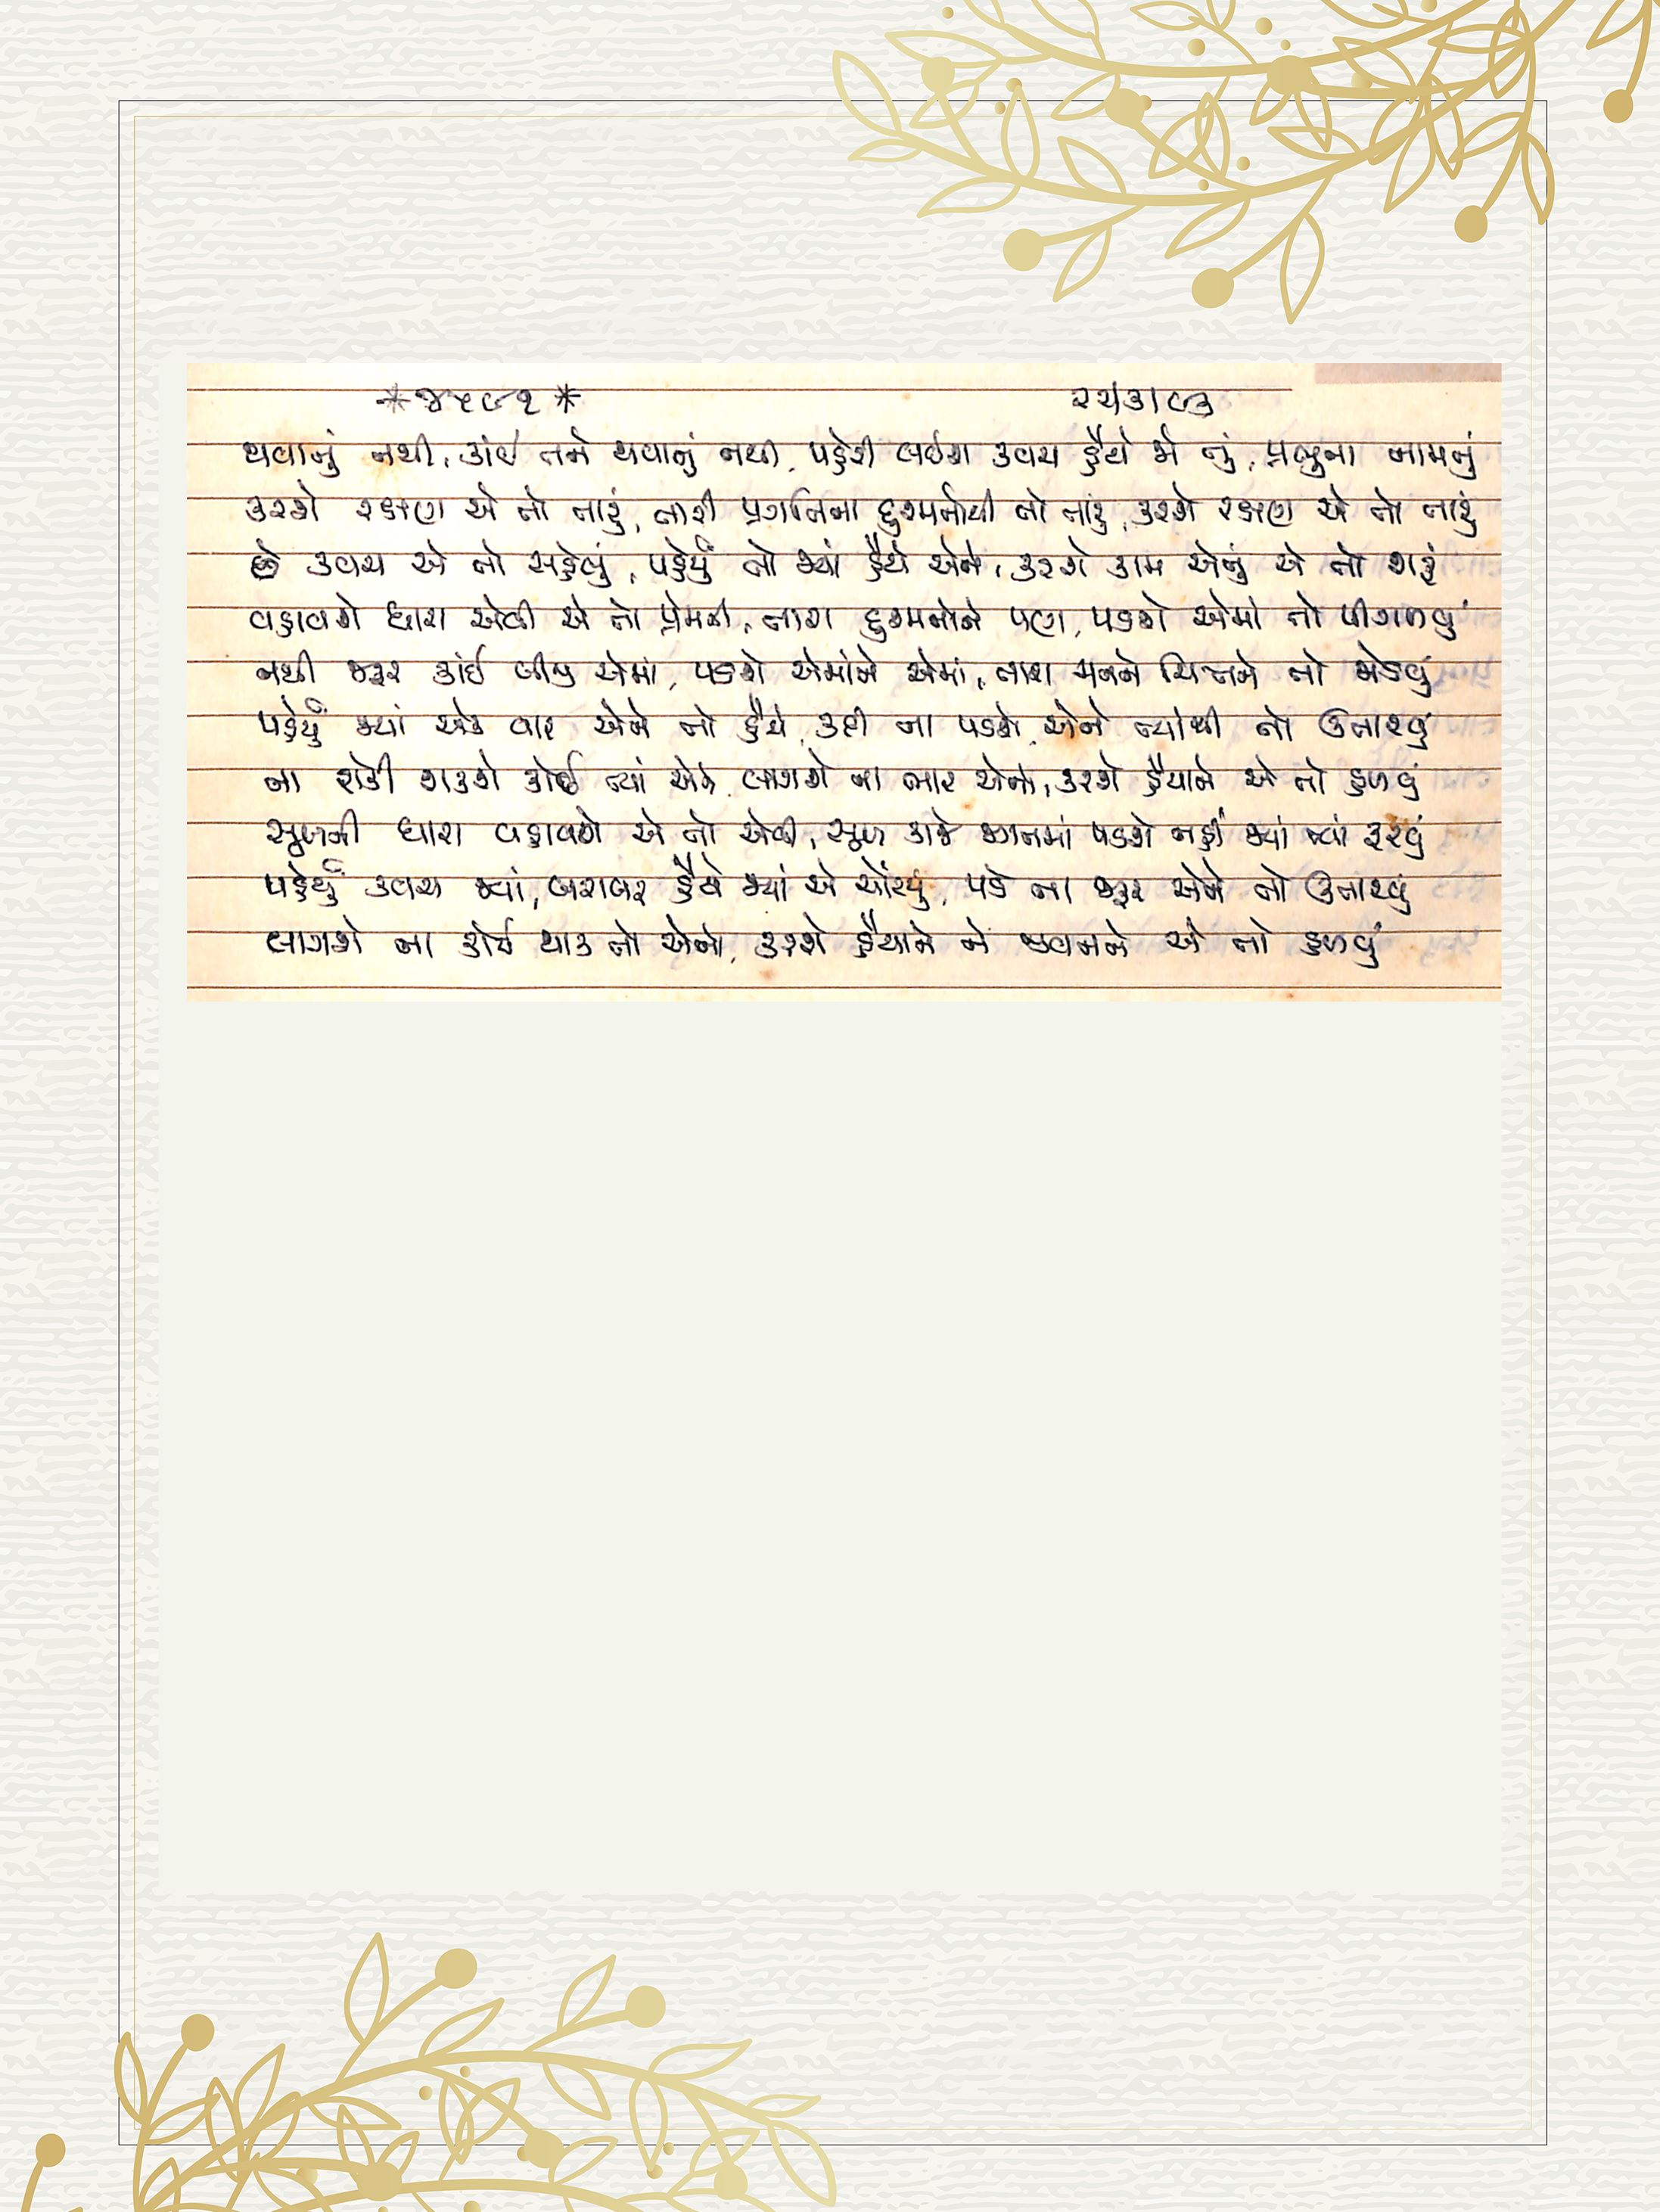 * ૪૫૯૧ * ૨૫/૩/૯૩
થવાનું નથી, કાંઈ તને થવાનું નથી, પહેરી લઈશ કવચ હૈયે જો તું, પ્રભુના નામનું
કરશે રક્ષણ એ તો તારું, તારી પ્રગતિના દુશ્મનોથી તો તારું, કરશે રક્ષણ એ તો તારું
છે કવચ એ તો સહેલું, પહેર્યું તો જ્યાં હૈયે એને, કરશે કામ એનું એ તો શરૂ
વહાવશે ધારા એવી એ તો પ્રેમની, તારા દુશ્મનોને પણ, પડશે એમાં તો પીગળવું
નથી જરૂર કાંઈ બીજુ એમાં, પડશે એમાંને એમાં, તારા મનને ચિત્તને તો જોડવું
પહેર્યું જ્યાં એક વાર એને તો હૈયે, કદી ના પડશે એને ત્યાંથી તો ઉતારવું
ના રોકી શકશે કોઈ ત્યાં એને, લાગશે ના ભાર એનો, કરશે હૈયાને એ તો હળવું
સૂખની ધારા વહાવશે એ તો એવી, સૂખ કાજે જગતમાં પડશે નહીં જ્યાં ત્યાં ફરવું
પહેર્યું કવચ જ્યાં, બરાબર હૈયે જ્યાં એ સોંસર્યું, પડે ના જરૂર એને તો ઉતારવું
લાગશે ના કોઈ થાક તો એનો, કરશે હૈયાને ને જીવનને એ તો હળવું